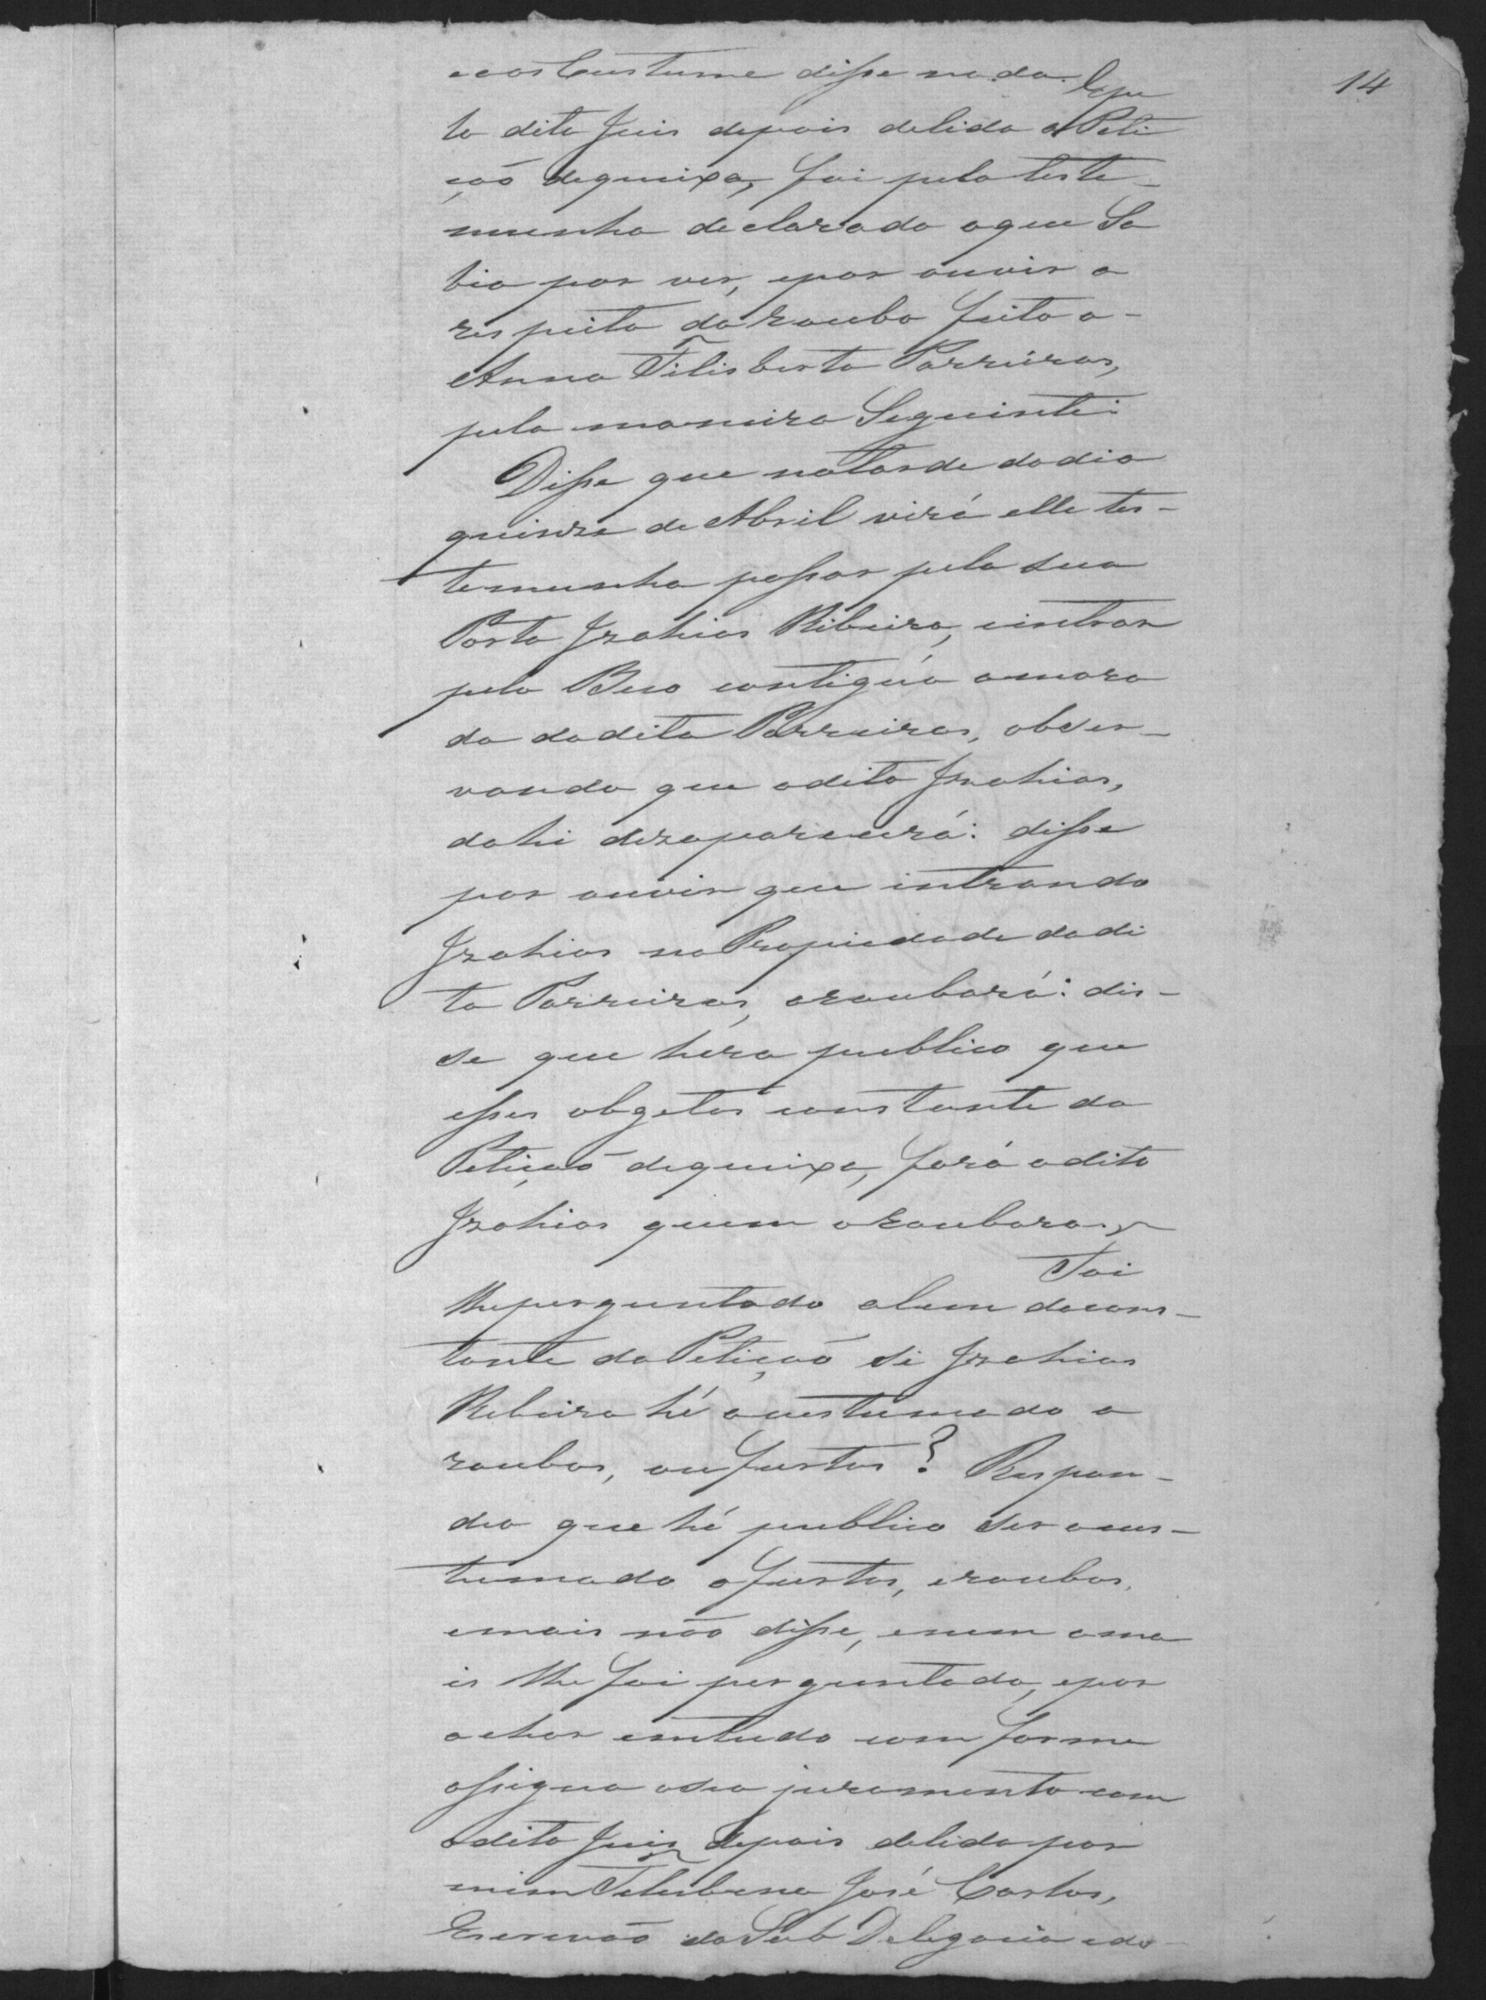 14
e aos Custume disse nada. E pe
lo dito Juis depois de lida a Peti
ção dequeixa, foi pela teste-
munha declarado oque Sa
bia por ver, epor ouvir a
respeito do roubo feito a-
Anna Filisberta Parreiras,
pela maneira Seguinte:
Disse que natarde dodia
quinze de Abril virá elle tes-
temunha passar pela sua
Porta Izahias Ribeiro, eintrar
pelo Beco contigúo amora
da dadita Parreiras, obser-
vando que odito Izahias,
dahi dezaparecerá: disse
por ouvir que intrando
Izahias naPropriedade dadi
ta Parreiras, aroubará: dis-
se que hera publico que
esses obgetos constante da
Petição dequeixa, fora odito
Izahias quem oroubara,
Foi
lhe perguntado alem docons-
tante daPetição si Izahias
Ribeiro hé acustumado a
roubos, oufurtos? Respon-
deo que hé publico ser acus-
tumado afurtos, eroubos,
emais não disse, enem ama
is lhe foi perguntado, epor
achar emtudo com forme
assigna oseo juramento com
odito Juiz depois delido por
mim Felisbino José Carlos,
Escrivão da Sub Delegacia edo